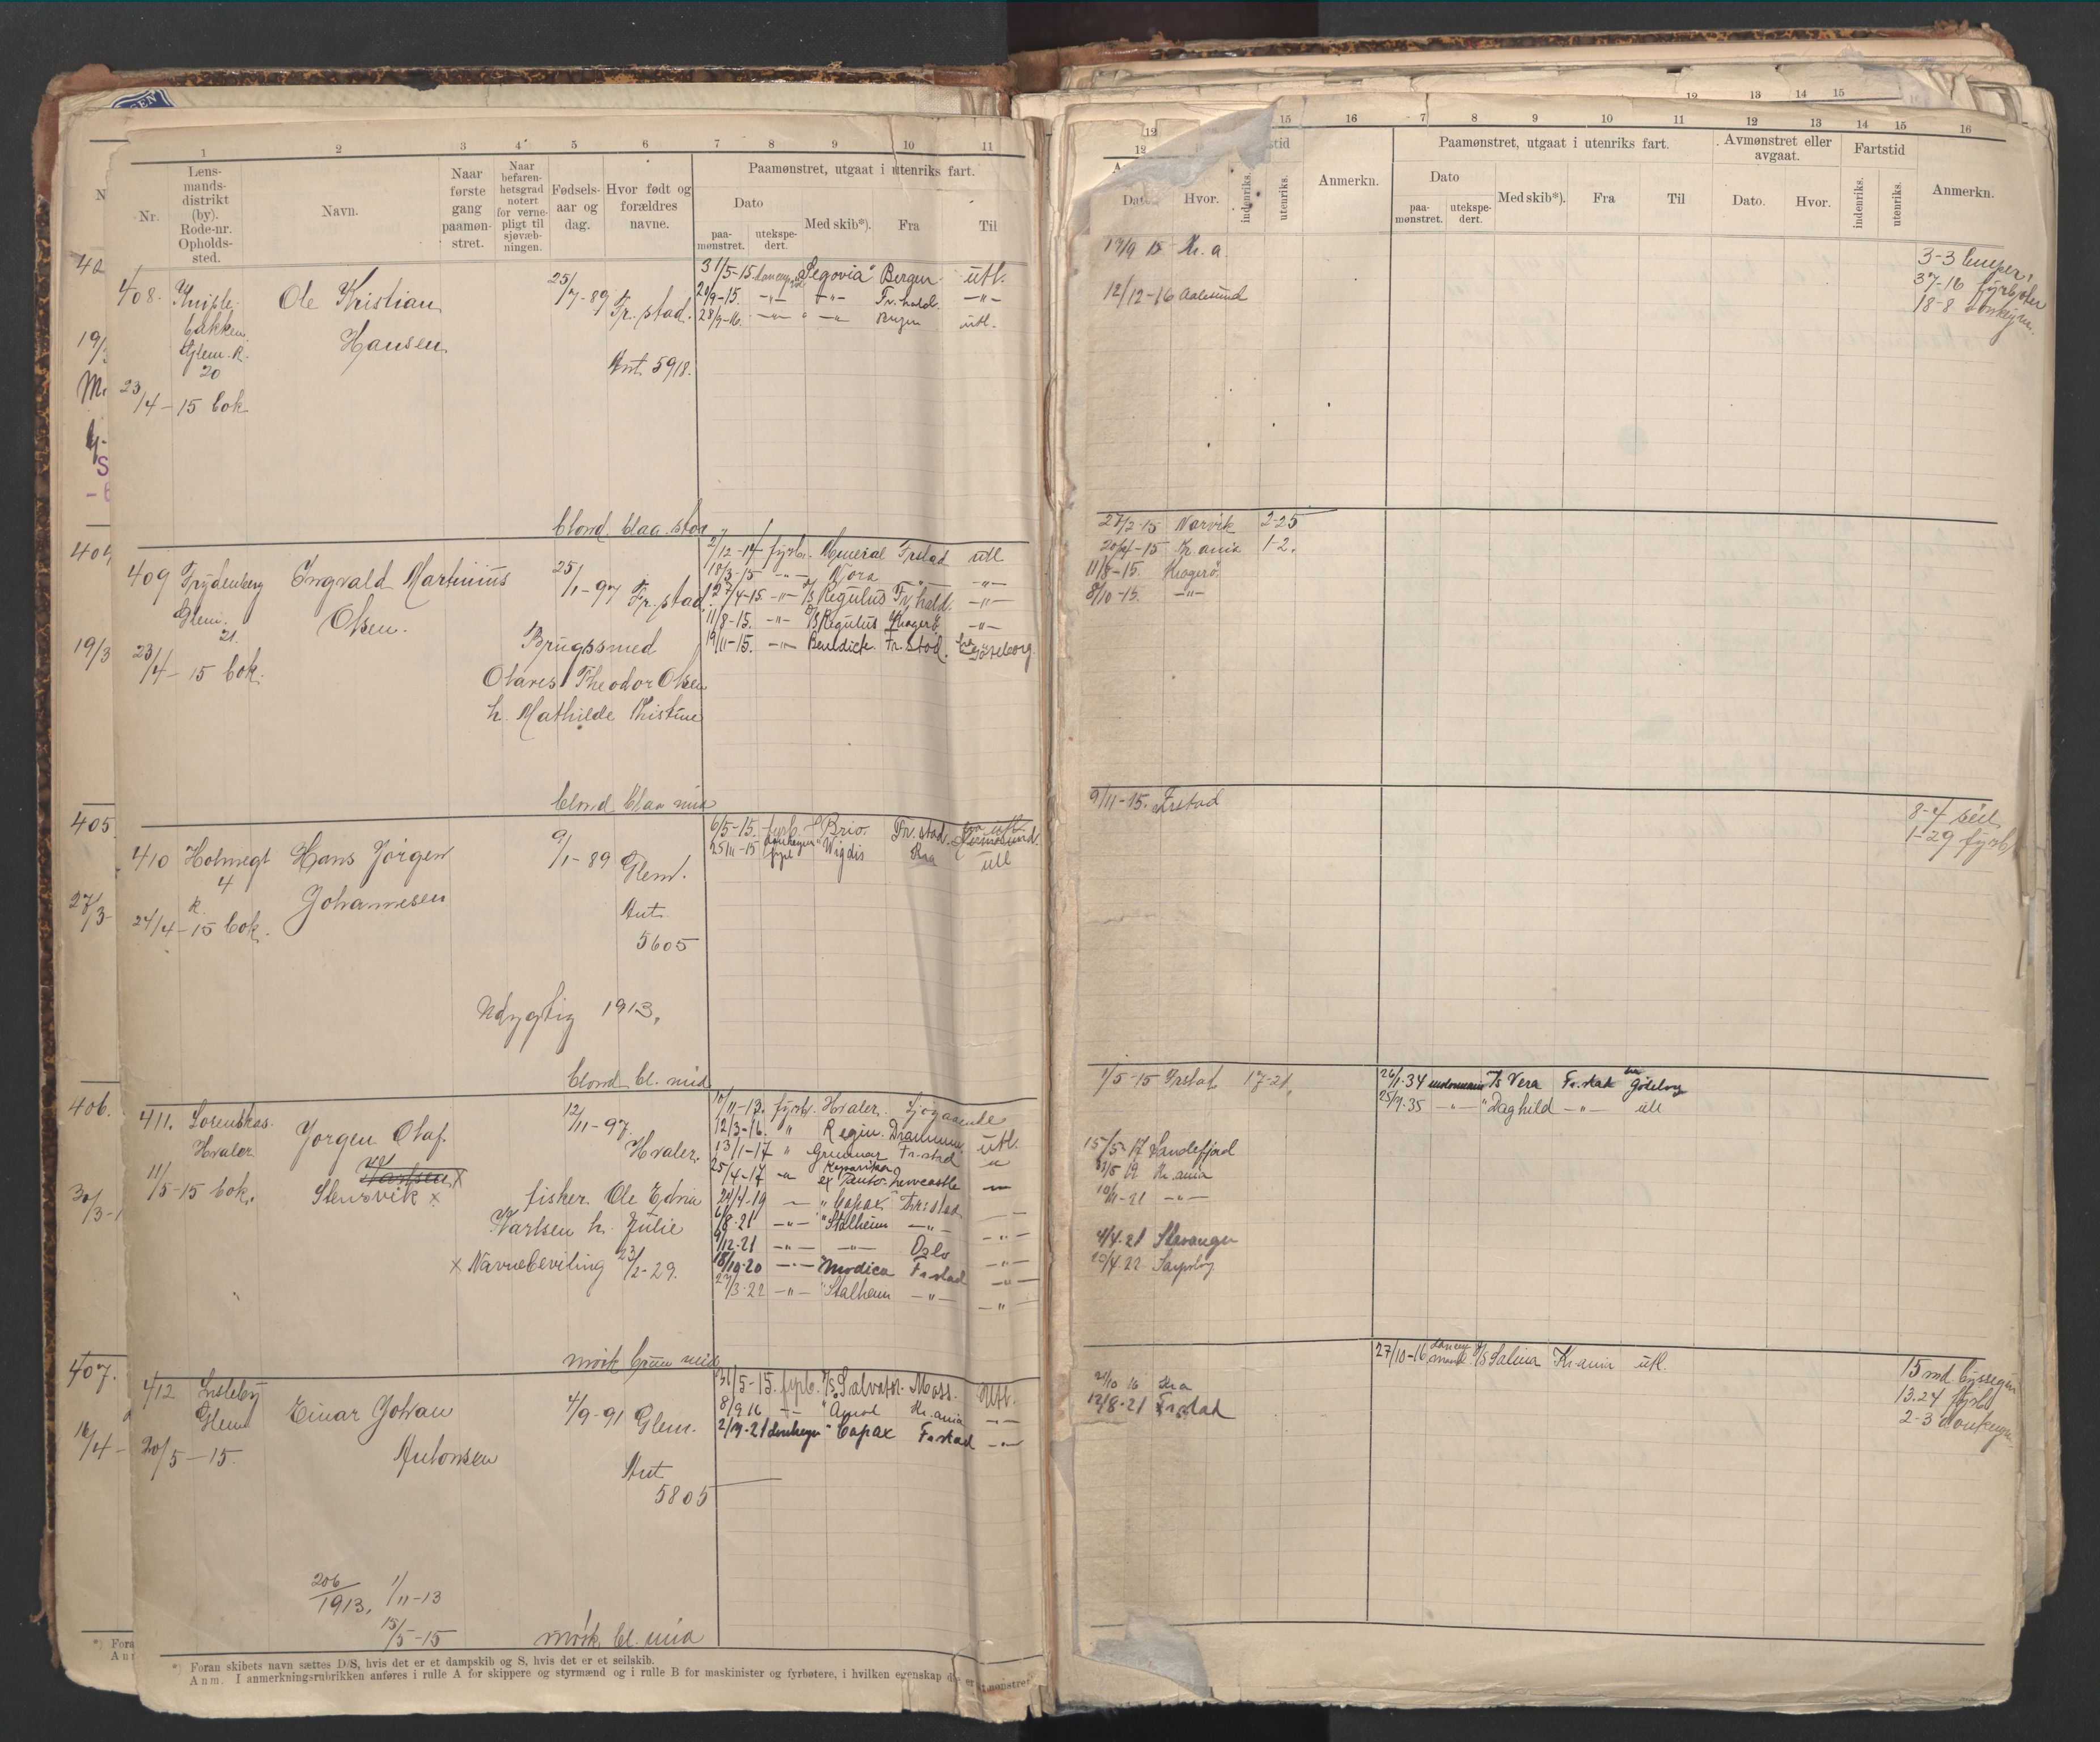 1 2 3 4 5 6 7 8 9 10 11
Nr.
Lens-
mands-
distrikt
(by).
Rode-nr.
Opholds-
sted.
Navn.
Naar
første
gang
paamøn-
stret.
Naar
befaren-
hetsgrad
notert
for verne-
pligt til
sjøvæb-
ningen.
Fødsels-
aar og
dag.
Hvor født og
forældres
navne.
Paamønstret, utgaat i utenriks fart.
Dato
paa-
mønstret.
utekspe-
dert.
Med skib*).
Fra
Til
408.
bakken
Glem. R.
20
23/4-15 bok
Ole Kristian
Hansen
25/7-89
Fr.stad.
Ant. 5918.
31/5-15 "Segovia" Bergen utl.
20/9-15. -"- -"- Fr.hald. -"-
28/9-16. -"- -"- Bergen utl.
blond. blaa. stor
409
Glem.
21.
23/4-15 bok.
Ingvald Martinius
Olsen.
25/1-97
Fr.stad.
Brugssmed
Olaves Theodor Olsen
h. Mathilde Kristine
2/12-14 fyrb. General Frstad utl
18/3-15 -"- Nora -"-
27/4-15. -"- D/S Regulus Fr.hald. -"-
11/8-15. -"- D/S Regulus Kragerö -"-
19/11-15. -"- Benedick. Fr.stad. Göteborg.
blond blaa mid
410
Holmegt
4
R.
24/4-15 bok.
Hans Jörgen
Johannesen
9/1-89
Glem.
Ant.
5605
Udygtig 1913.
6/5-15. fyrb. Brio. Fr.stad.
25/11-15 "Wigdis Kra utl
blond bl. mid
411.
Hvaler
11/5-15 bok.
Jörgen Olaf.
Karlsen x
Stensvik x
12/11-97.
Hvaler.
fisker. Ole Edvin
Karlsen h. Julie
x Navnebeviling 23/2-29.
10/11-13. fyrb. Hvaler.
12/3-16. " Regin. Drammen utl.
13/1-17 " Grunnar Fr.stad "
25/4-17 Newcastle
24/4-19 "Capax Fr.stad
6/8-21 -"- "Stalheim -"-
9/12-21 -"- -"- Oslo -"-
18/10-20 -"- "Modica Fr.stad -"-
27/3-22 -"- "Stalheim -"- -"-
mörk brun mid
412
Lisleby
Glem
20/5-15.
Einar Johan
Antonsen
4/9-91
Glem.
Ant
5805
31/5-15. fyrb. D/S Salvator. Moss. Utl.
8/9 16 Kr.ania
2/9-21 "Capax Fr.stad
206/1913. 1/11-13
15/5-15
mörk bl. mid
*) Foran skibets navn sættes D/S, hvis det er et dampskib og S, hvis det er et seilskib.
Anm. I anmerkningsrubrikken anføres i rulle A for skippere og styrmænd og i rulle B for maskinister og fyrbøtere, i hvilken egenskap
404
19/3
405
27/3-
406.
30/3-1
407.
16/4-
12 15 16 7 8 9 10 11 12 13 14 15 16
Hvor.
indenriks.
utenriks.
Anmerkn.
Paamønstret, utgaat i utenriks fart.
Dato
paa-
mønstret.
utekspe-
dert.
Med skib*).
Fra
Til
Avmønstret eller
avgaat.
Dato.
Hvor.
Fartstid
indenriks.
utenriks.
Anmerkn.
17/9 15 Kr.a
12/12-16 Aalesund
3-3 lemper.
37-16 fyrbøter
18-8 donkeym.
27/2-15 Narvik 2-25
20/4-15 Kr.ania 1-2.
11/8-15. Kragerö.
8/10-15. -"-
9/11-15. Frstad
1-29 fyrb
1/5-15 Frstad 17-21.
26/1-34 D/S Vera Fr.stad Göteborg
25/9-35 -"- "Daghild -"- utl
15/5-17 Sandefjord
Kr.ania
10/11-21 -"-
4/4-21 Stavanger
20/4-22 Sarpsborg
27/10-16 D/S Salina Kr.ania utl.
16 Kra
12/8-21 Frstad
15 md. byssegut
13.24 fyrb
2-3 donkeym.